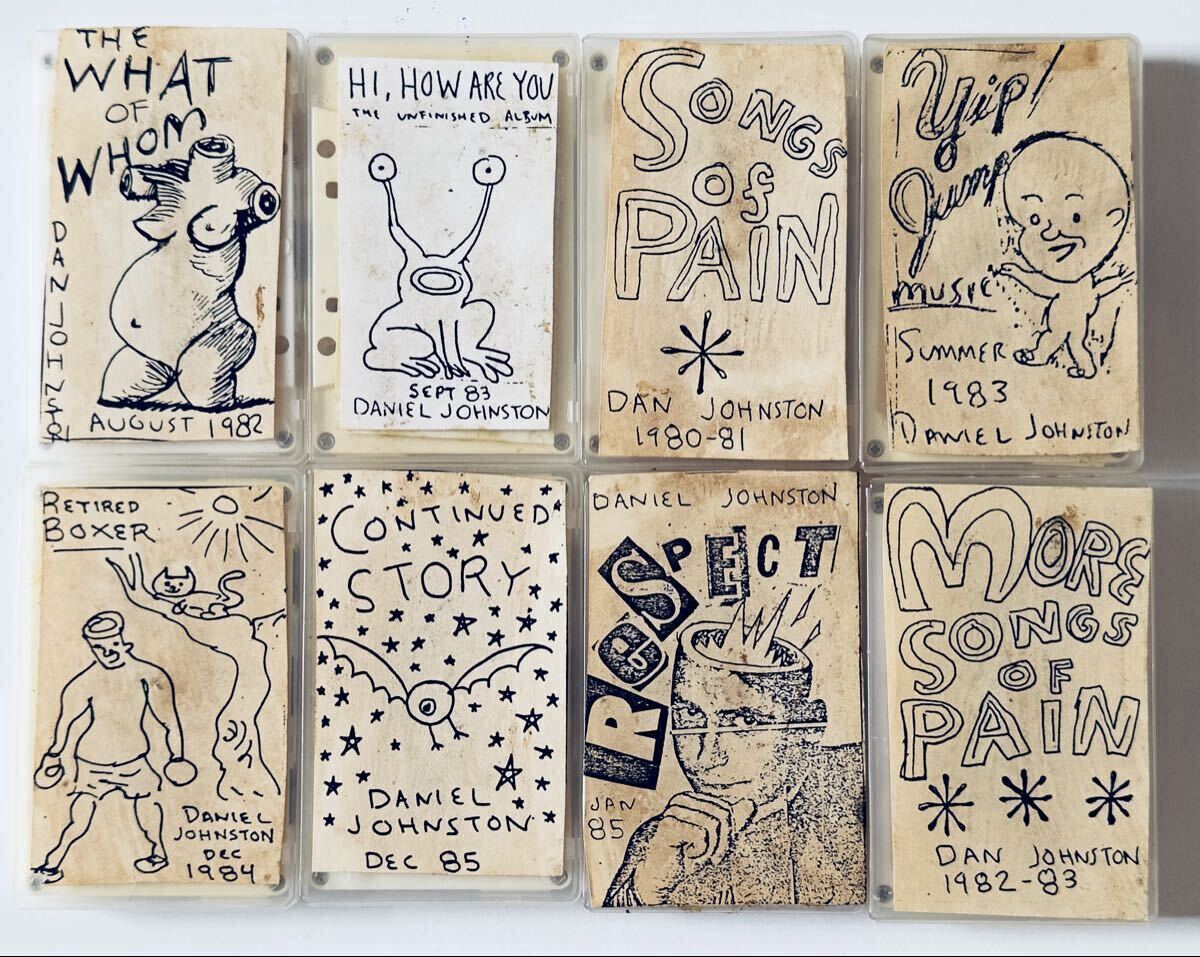 THE
WHAT
OF
WHOM
DAN JOHNSTON
AUGUST 1982
HI, HOW ARE YOU
THE UNFINISHED ALBUM
SEPT 83
DANIEL JOHNSTON
SONGS
OF
PAIN
DAN JOHNSTON
1980-81
Yip/
Jump
MUSIC
SUMMER
1983
DANIEL JOHNSTON
RETIRED
BOXER
DANIEL
JOHNSTON
DEC
1984
CONTINUED
STORY
DANIEL
JOHNSTON
DEC 85
DANIEL JOHNSTON
ReSPECT
JAN
85
MORE
SONGS
OF
PAIN
DAN JOHNSTON
1982-83